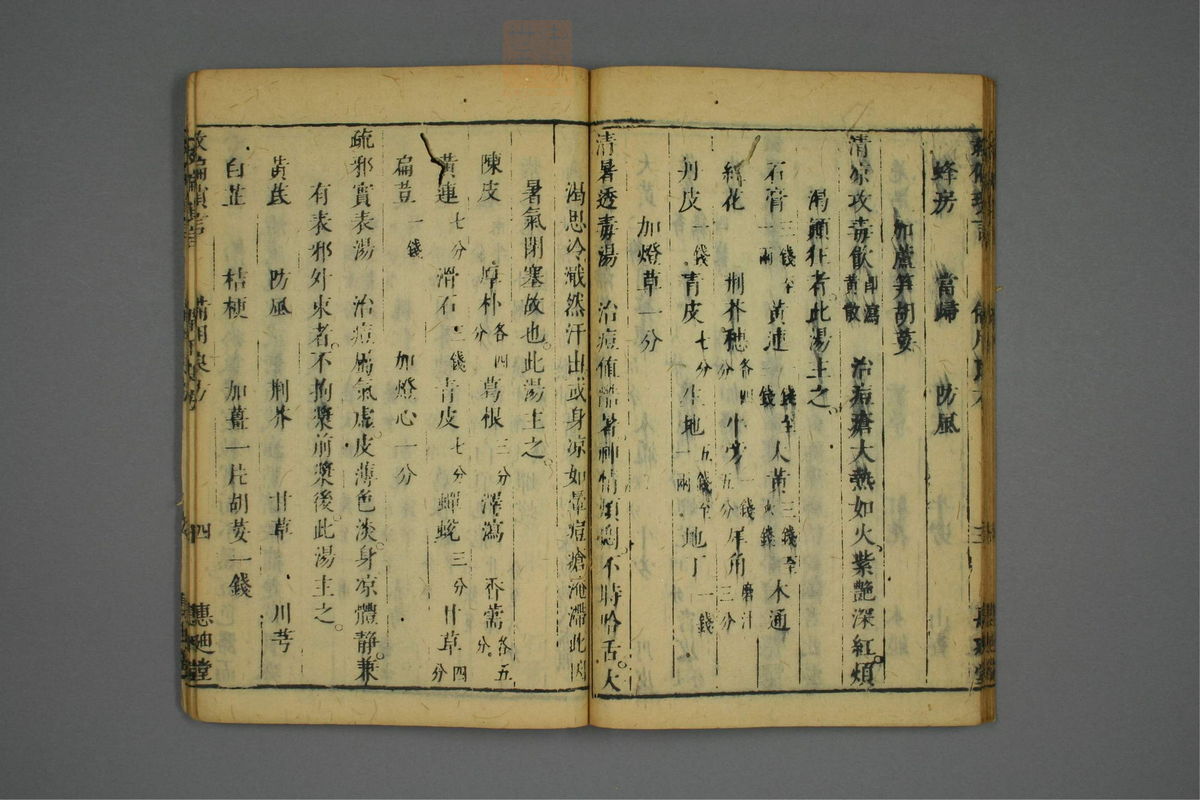 蜂房 當歸 防風
加蘆笋胡荽
清凉攻毒飲 即瀉黃散 治痘瘡大熱如火。紫艷深紅。煩
渴顛狂者。此湯主之。
石膏 三錢至一兩 黃連 錢至 錢 大黃 三錢至 錢 木通
紅花 荆芥穗 各四分 牛蒡 一錢五分 犀角 磨汁三分
丹皮 錢 青皮 七分 生地 五錢至一兩 地丁 一錢
加燈草一分
清暑透毒湯 治痘値酷暑神情煩悶。不時哈舌。大
渴思冷濈然汗出或身凉如暈痘瘡淹滯此因
暑氣閉塞故也。此湯主之。
陳皮 厚朴 各四分 葛根 三分 澤瀉 香薷 各五分
黃連 七分 滑石 二錢 青皮 七分 蟬蛻 三分 甘草 四分
扁荳 一錢 加燈心一分
疏邪實表湯 治痘屬氣虛。皮薄色淡。身凉體靜。兼
有表邪外束者。不拘漿前漿後。此湯主之。
黃芪 防風 荆芥 甘草 川芎
白芷 桔梗 加薑一片胡荽一錢
救偏瑣言 備用良方 四 惠迪堂